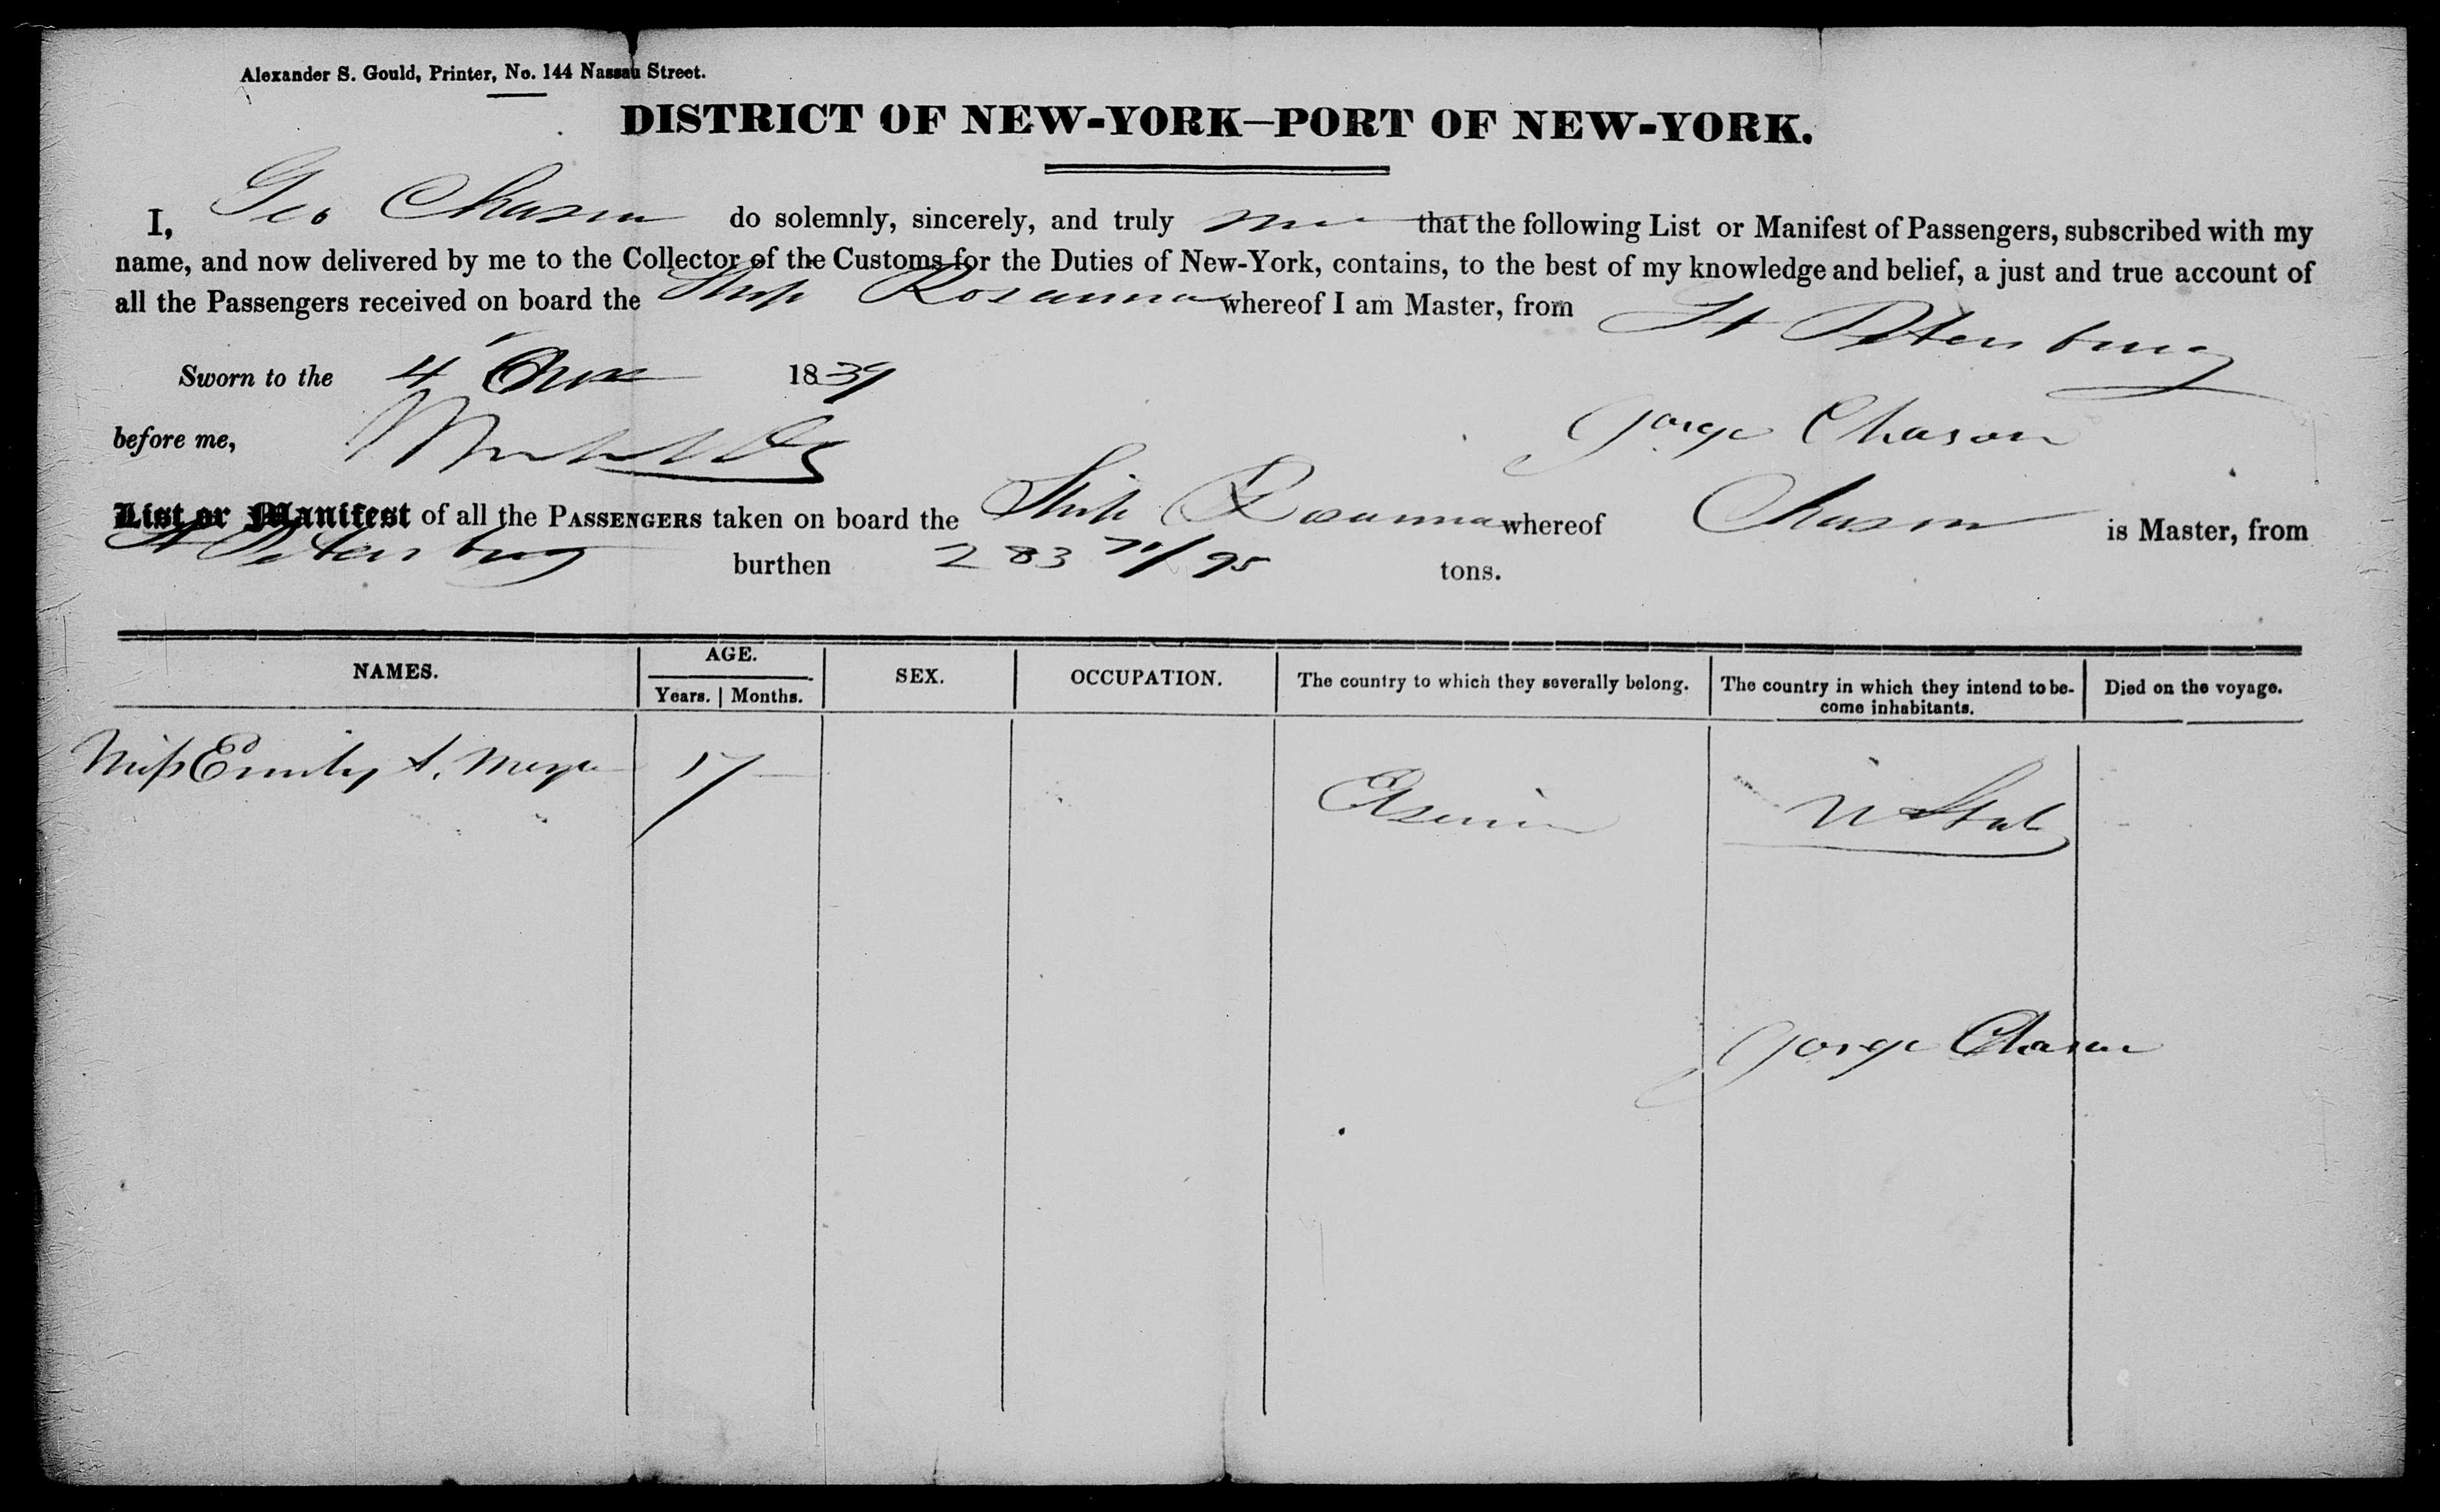 Alexander S. Gould, Printer, No. 144 Nassau Street.
DISTRICT OF NEW-YORK—PORT OF NEW-YORK.
I, Geo Chason do solemnly, sincerely, and truly that the following List or Manifest of Passengers, subscribed with my
name, and now delivered by me to the Collector of the Customs for the Duties of New-York, contains, to the best of my knowledge and belief, a just and true account of
all the Passengers received on board the Ship Rosanna whereof I am Master, from St Petersburg
Sworn to the 4 1839
before me,
George Chason
List or Manifest of all the PASSENGERS taken on board the Ship Rosanna whereof Chason is Master, from
St Petersburg burthen 283 /95 tons.
NAMES. AGE. SEX. OCCUPATION. The country to which they severally belong. The country in which they intend to be-come inhabitants. Died on the voyage.
Years. Months.
Miss Emily 17 U State
George Chason